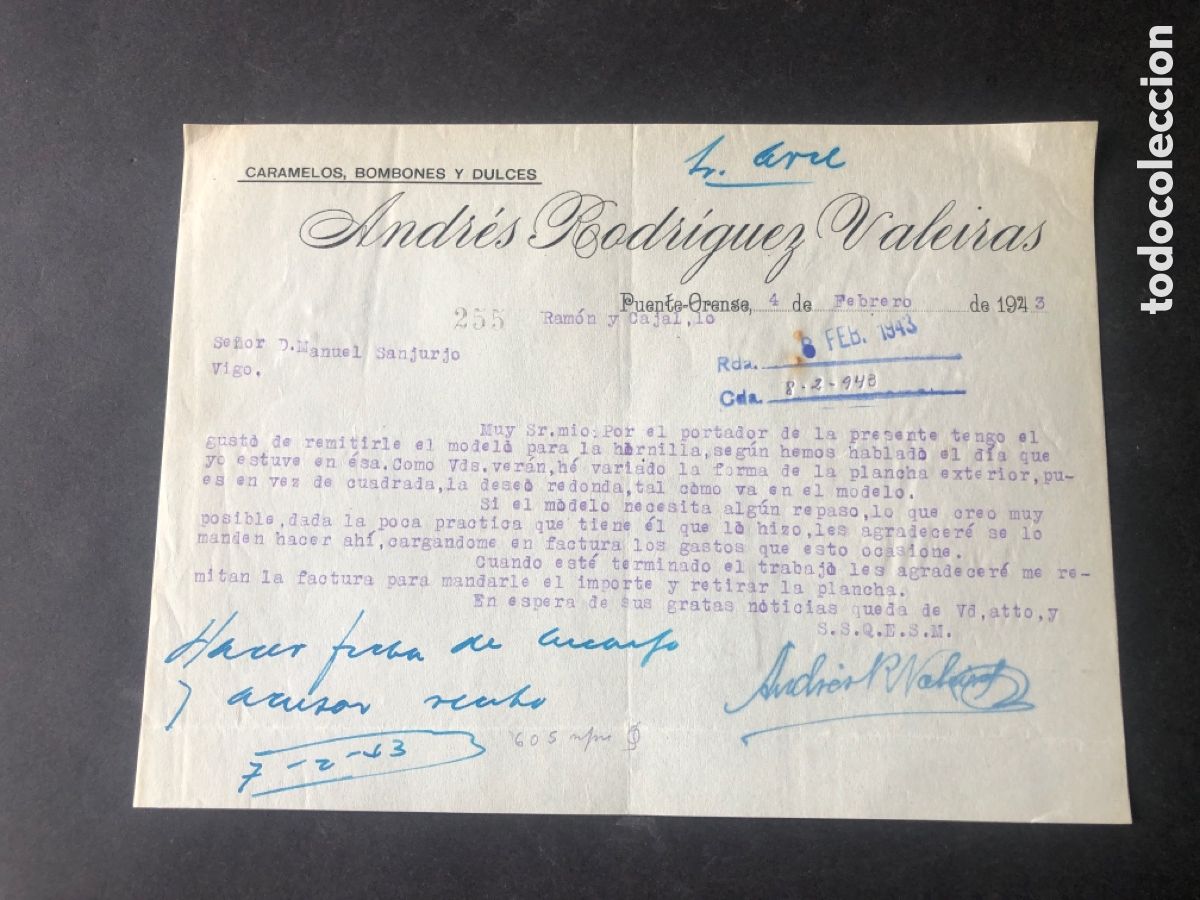 todocoleccion
CARAMELOS, BOMBONES Y DULCES
Andrés Rodríguez Valeiras
Puente-Orense, 4 de Febrero de 1943
255 Ramón y Cajal, lo
Señor D.Manuel Sanjurjo
Vigo.
Rda. 8 FEB. 1943
Cda. 8-2-943
Muy Sr.mio:Por el portador de la presente tengo el
gusto de remitirle el modelo para la hornilla,según hemos hablado el día que
yo estuve en ésa.Como Vds.verán,hé variado la forma de la plancha exterior,pu-
es en vez de cuadrada,la deseo redonda,tal como va en el modelo.
Si el modelo necesita algún repaso,lo que creo muy
posible,dada la poca practica que tiene él que lo hizo,les agradeceré se lo
manden hacer ahí,cargandome en factura los gastos que esto ocasione.
Cuando esté terminado el trabajo les agradeceré me re-
mitan la factura para mandarle el importe y retirar la plancha.
En espera de sus gratas noticias queda de Vd,atto,y
S.S.Q.E.S.M.
Andrés R Valeiras
Hacer ficha de encargo
y acusar recibo
7-2-43
605